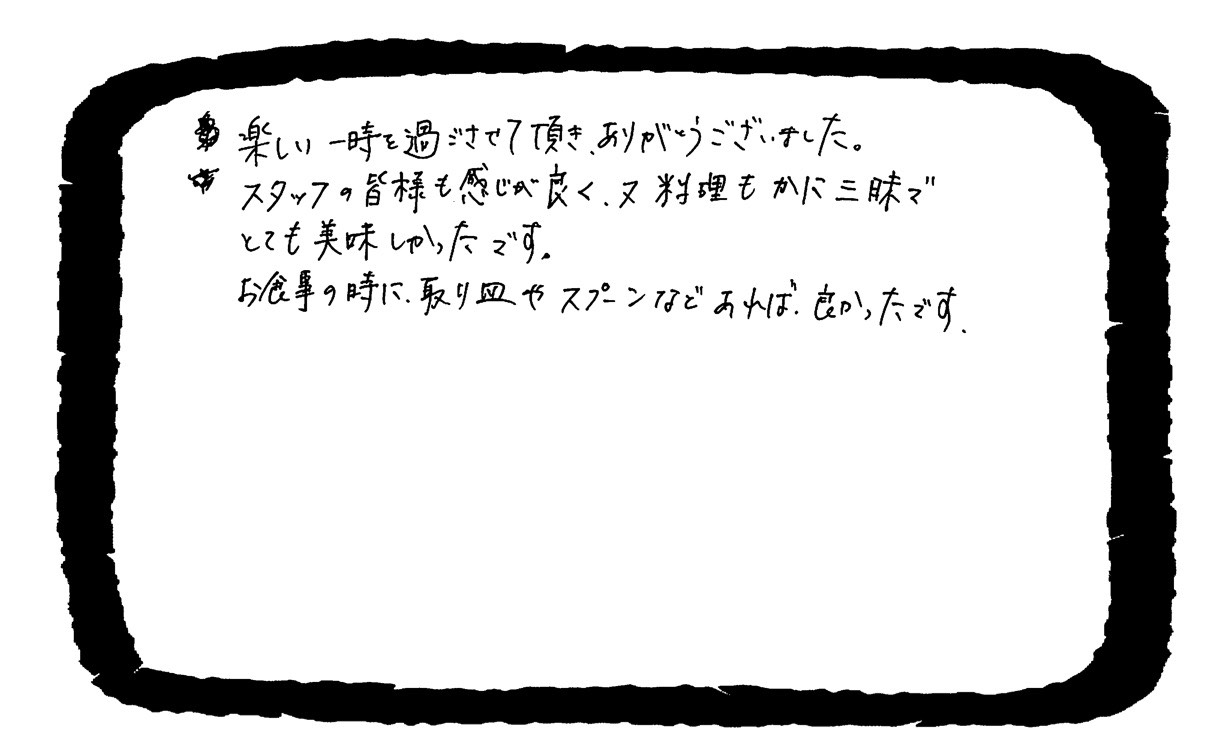 楽しい一時を過ごさせて頂き、ありがとうございました。
スタッフの皆様も感じが良く、又料理もかに三昧で
とても美味しかったです。
お食事の時に、取り皿やスプーンなどあれば、良かったです。